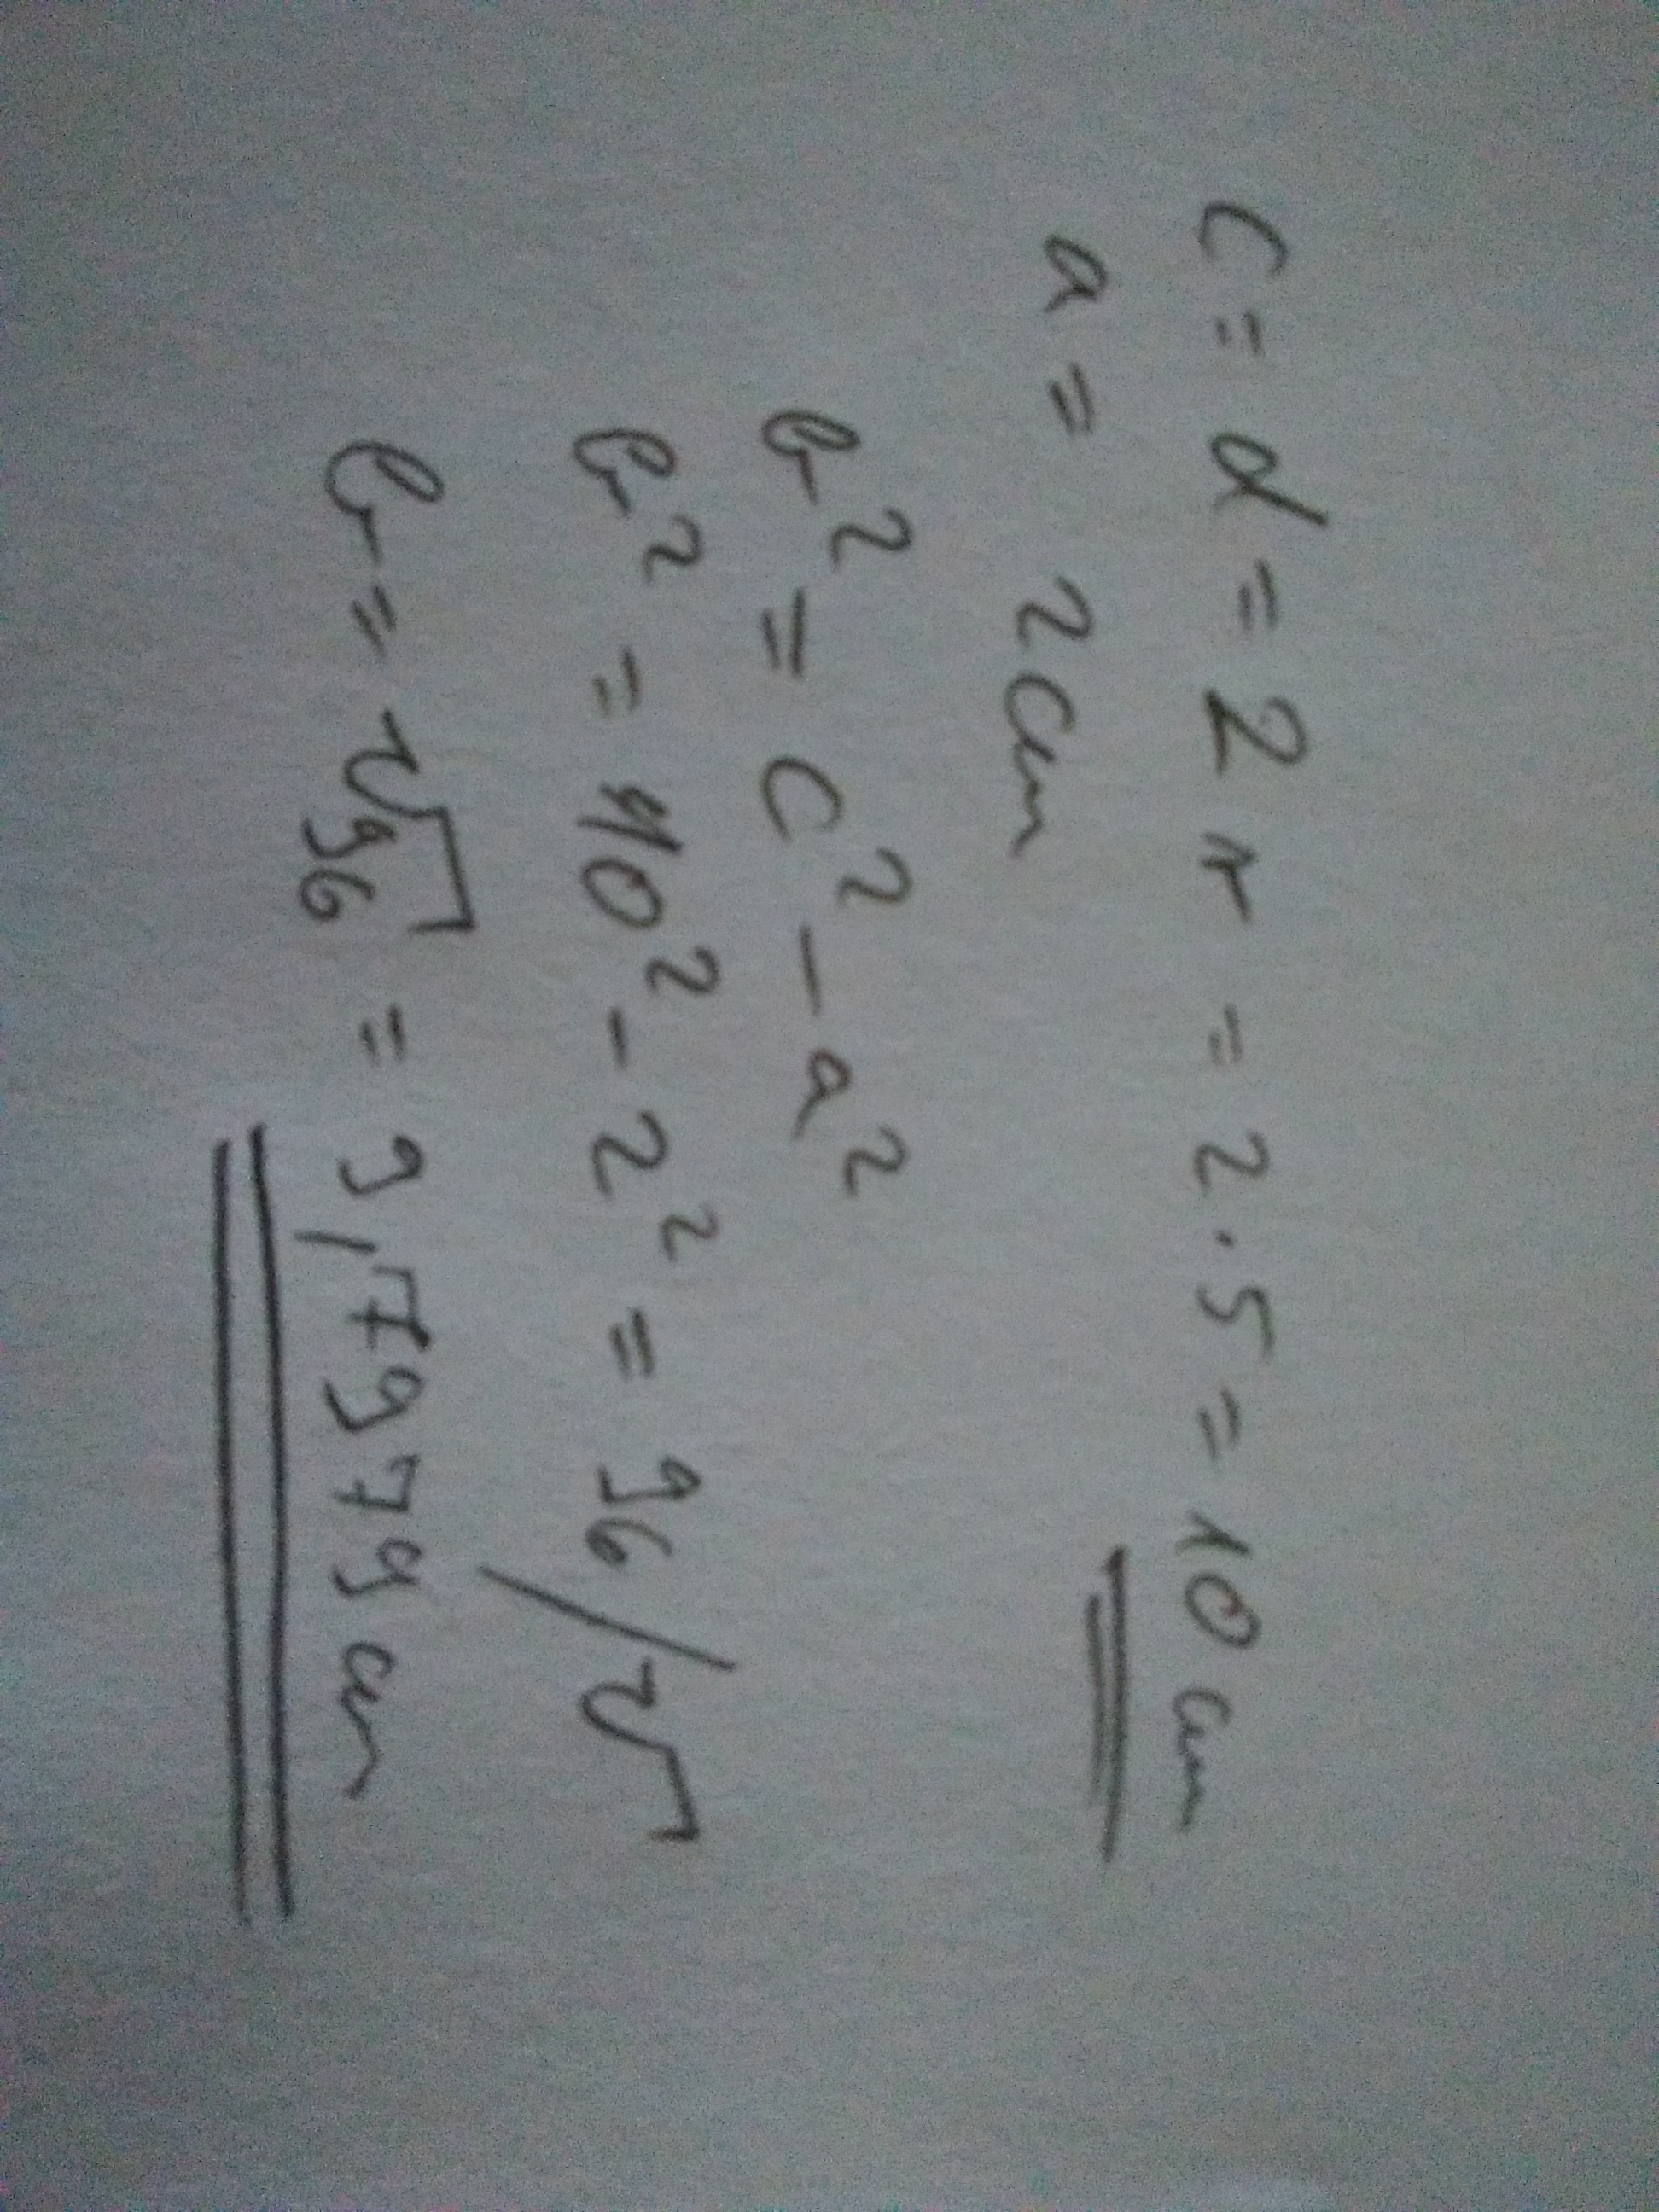 c = d = 2r = 2 · 5 = 10 cm
a = 2 cm
b² = c² - a²
b² = 10² - 2² = 96 /√
b = √96 = 9,7979 cm